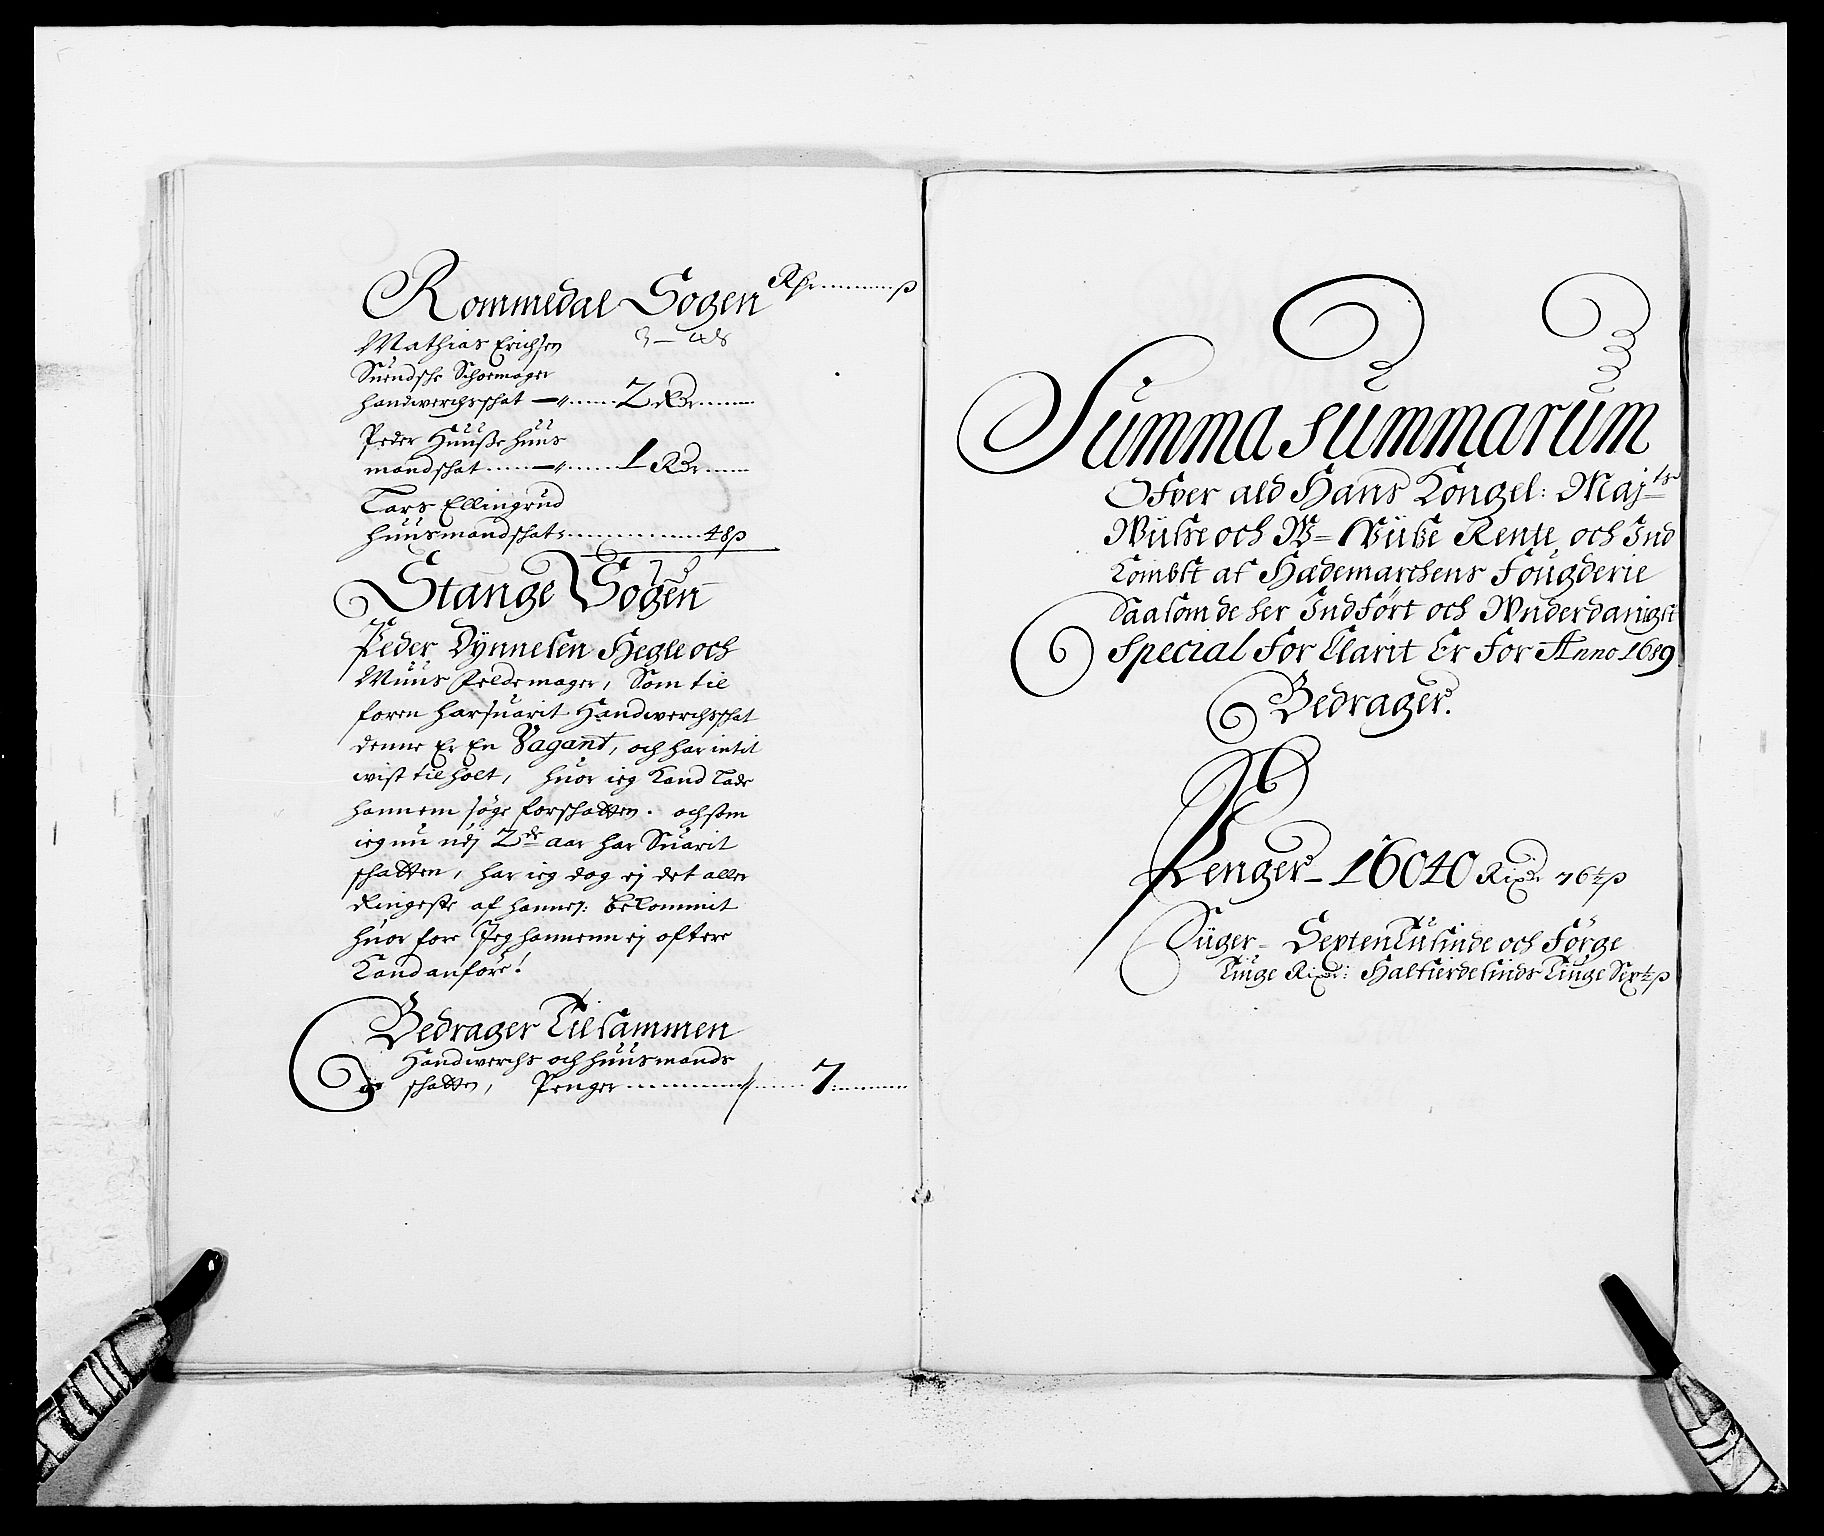 Rommedal Sogen Rdr ß
Mathias Erichsen
Suendsche Schoemager
handwerchsschat 2 Rdr
Peder Huuße huus
mandschat 1 Rdr
Lars Ellingrud
huusmandschat 48 ß
Stange Sogen
Peder Dynnesen Hegle och
Muus Peldemager, Som til
foren har suarit Handwerchsschat
denne Er En Vagant, och har intit
wist tilholt, huor ieg Kand Lade
hannem søge forschatten. och som
ieg nu udj 2de aar har Suarit
schatten, har ieg dog ej det aller
Ringeste af hannem: bekommit
huor fore Jeg hannem ej oftere
Kand anføre!
Bedrager Tilsammen
Handwerchs och huusmands
schatten, Penger 7
Summa summarum
Ofver ald Hans Kongel: Majts
Wiße och W= Wiße Rente och Ind
Kombst af Hædemarchens Fougderie
Saasom de her Indført och Underdanigst
special For Klarit Er For Anno 1689
Bedrager.
Penger 16040 Rixdr 76½ ß
Siger Sexten Tusinde och Førge
Tiuge Rixdr: Halfierdesinds Tiuge Sex½ ß